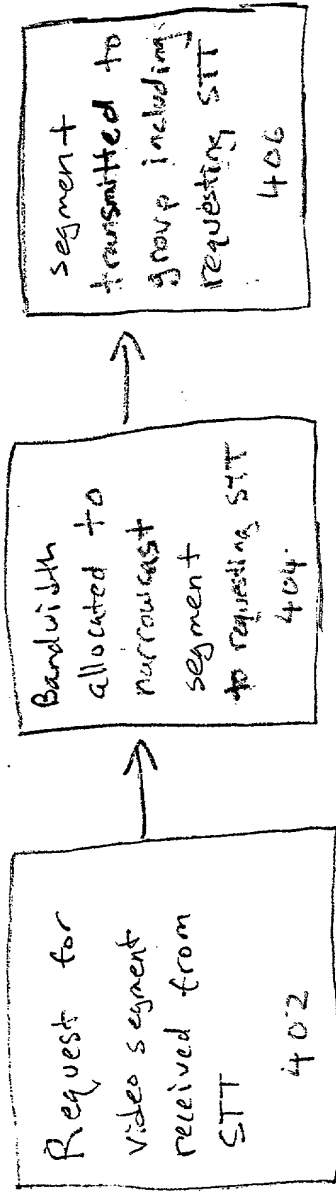 Request for
video segment
received from
STT
402
Bandwidth
allocated to
narrowcast
segment
to requesting STT
404.
segment
transmitted to
group including
requesting STT
406